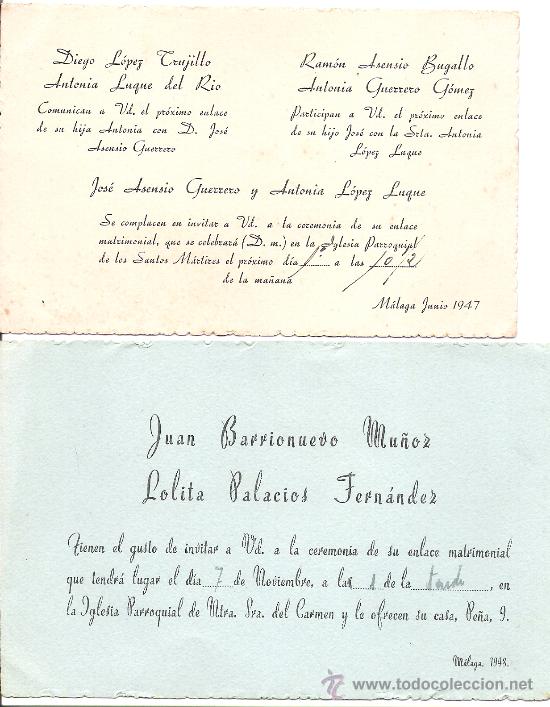 Diego López Trujillo
Antonia Luque del Rio
Comunican a Vd. el próximo enlace
de su hija Antonia con D. José
Asensio Guerrero
Ramón Asensio Bugallo
Antonia Guerrero Gómez
Participan a Vd. el próximo enlace
de su hijo José con la Srta. Antonia
López Luque
José Asensio Guerrero y Antonia López Luque
Se complacen en invitar a Vd. a la ceremonia de su enlace
matrimonial, que se celebrará (D. m.) en la Iglesia Parroquial
de los Santos Mártires el próximo día a las 10 1/2
de la mañana
Málaga Junio 1947
Juan Barrionuevo Muñoz
Lolita Palacios Fernández
Tienen el gusto de invitar a Vd. a la ceremonia de su enlace matrimonial
que tendrá lugar el día 7 de Noviembre, a las 1 de la tarde, en
la Iglesia Parroquial de Ntra. Sra. del Carmen y le ofrecen su casa, Peña, 9.
Málaga, 1948.
todocoleccion
www.todocoleccion.net